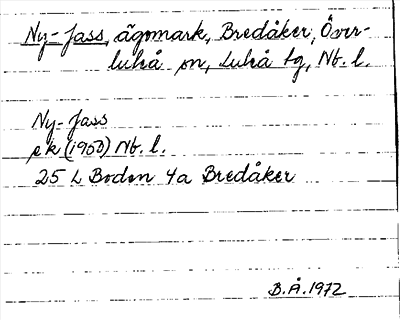 Ny-Jass, ägomark, Bredåker, Över-
luleå sn, Luleå tg, Nb. l.
Ny-Jass
ek (1950) Nb. l.
25 L Boden 4a Bredåker
B.Å. 1972